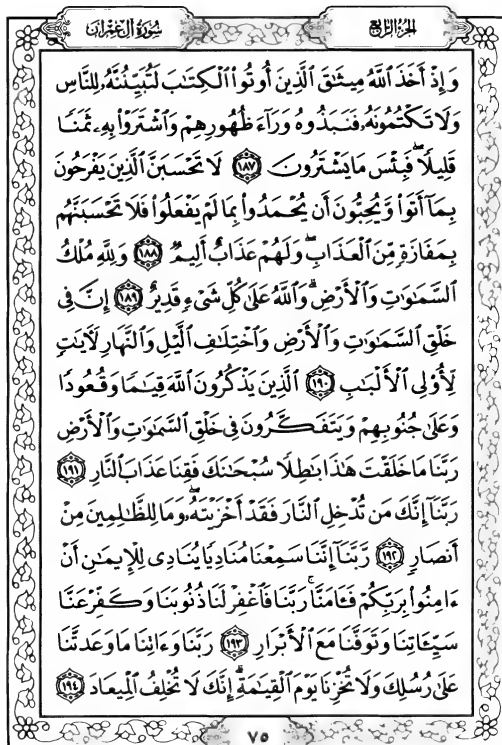 سُورَةُ آلِ عِمْرَان
الجُزْءُ الرَّابِعُ
وَإِذْ أَخَذَ ٱللَّهُ مِيثَٰقَ ٱلَّذِينَ أُوتُوا۟ ٱلْكِتَٰبَ لَتُبَيِّنُنَّهُۥ لِلنَّاسِ
وَلَا تَكْتُمُونَهُۥ فَنَبَذُوهُ وَرَآءَ ظُهُورِهِمْ وَٱشْتَرَوْا۟ بِهِۦ ثَمَنًا
قَلِيلًا ۖ فَبِئْسَ مَا يَشْتَرُونَ ١٨٧ لَا تَحْسَبَنَّ ٱلَّذِينَ يَفْرَحُونَ
بِمَآ أَتَوا۟ وَّيُحِبُّونَ أَن يُحْمَدُوا۟ بِمَا لَمْ يَفْعَلُوا۟ فَلَا تَحْسَبَنَّهُم
بِمَفَازَةٍ مِّنَ ٱلْعَذَابِ ۖ وَلَهُمْ عَذَابٌ أَلِيمٌ ١٨٨ وَلِلَّهِ مُلْكُ
ٱلسَّمَٰوَٰتِ وَٱلْأَرْضِ ۗ وَٱللَّهُ عَلَىٰ كُلِّ شَىْءٍ قَدِيرٌ ١٨٩ إِنَّ فِى
خَلْقِ ٱلسَّمَٰوَٰتِ وَٱلْأَرْضِ وَٱخْتِلَٰفِ ٱلَّيْلِ وَٱلنَّهَارِ لَـَٔايَٰتٍ
لِّأُو۟لِى ٱلْأَلْبَٰبِ ١٩٠ ٱلَّذِينَ يَذْكُرُونَ ٱللَّهَ قِيَٰمًا وَقُعُودًا
وَعَلَىٰ جُنُوبِهِمْ وَيَتَفَكَّرُونَ فِى خَلْقِ ٱلسَّمَٰوَٰتِ وَٱلْأَرْضِ
رَبَّنَا مَا خَلَقْتَ هَٰذَا بَٰطِلًا سُبْحَٰنَكَ فَقِنَا عَذَابَ ٱلنَّارِ ١٩١
رَبَّنَآ إِنَّكَ مَن تُدْخِلِ ٱلنَّارَ فَقَدْ أَخْزَيْتَهُۥ ۖ وَمَا لِلظَّٰلِمِينَ مِنْ
أَنصَارٍ ١٩٢ رَّبَّنَآ إِنَّنَا سَمِعْنَا مُنَادِيًا يُنَادِى لِلْإِيمَٰنِ أَنْ
ءَامِنُوا۟ بِرَبِّكُمْ فَـَٔامَنَّا ۚ رَبَّنَا فَٱغْفِرْ لَنَا ذُنُوبَنَا وَكَفِّرْ عَنَّا
سَيِّـَٔاتِنَا وَتَوَفَّنَا مَعَ ٱلْأَبْرَارِ ١٩٣ رَبَّنَا وَءَاتِنَا مَا وَعَدتَّنَا
عَلَىٰ رُسُلِكَ وَلَا تُخْزِنَا يَوْمَ ٱلْقِيَٰمَةِ ۗ إِنَّكَ لَا تُخْلِفُ ٱلْمِيعَادَ ١٩٤
٧٥